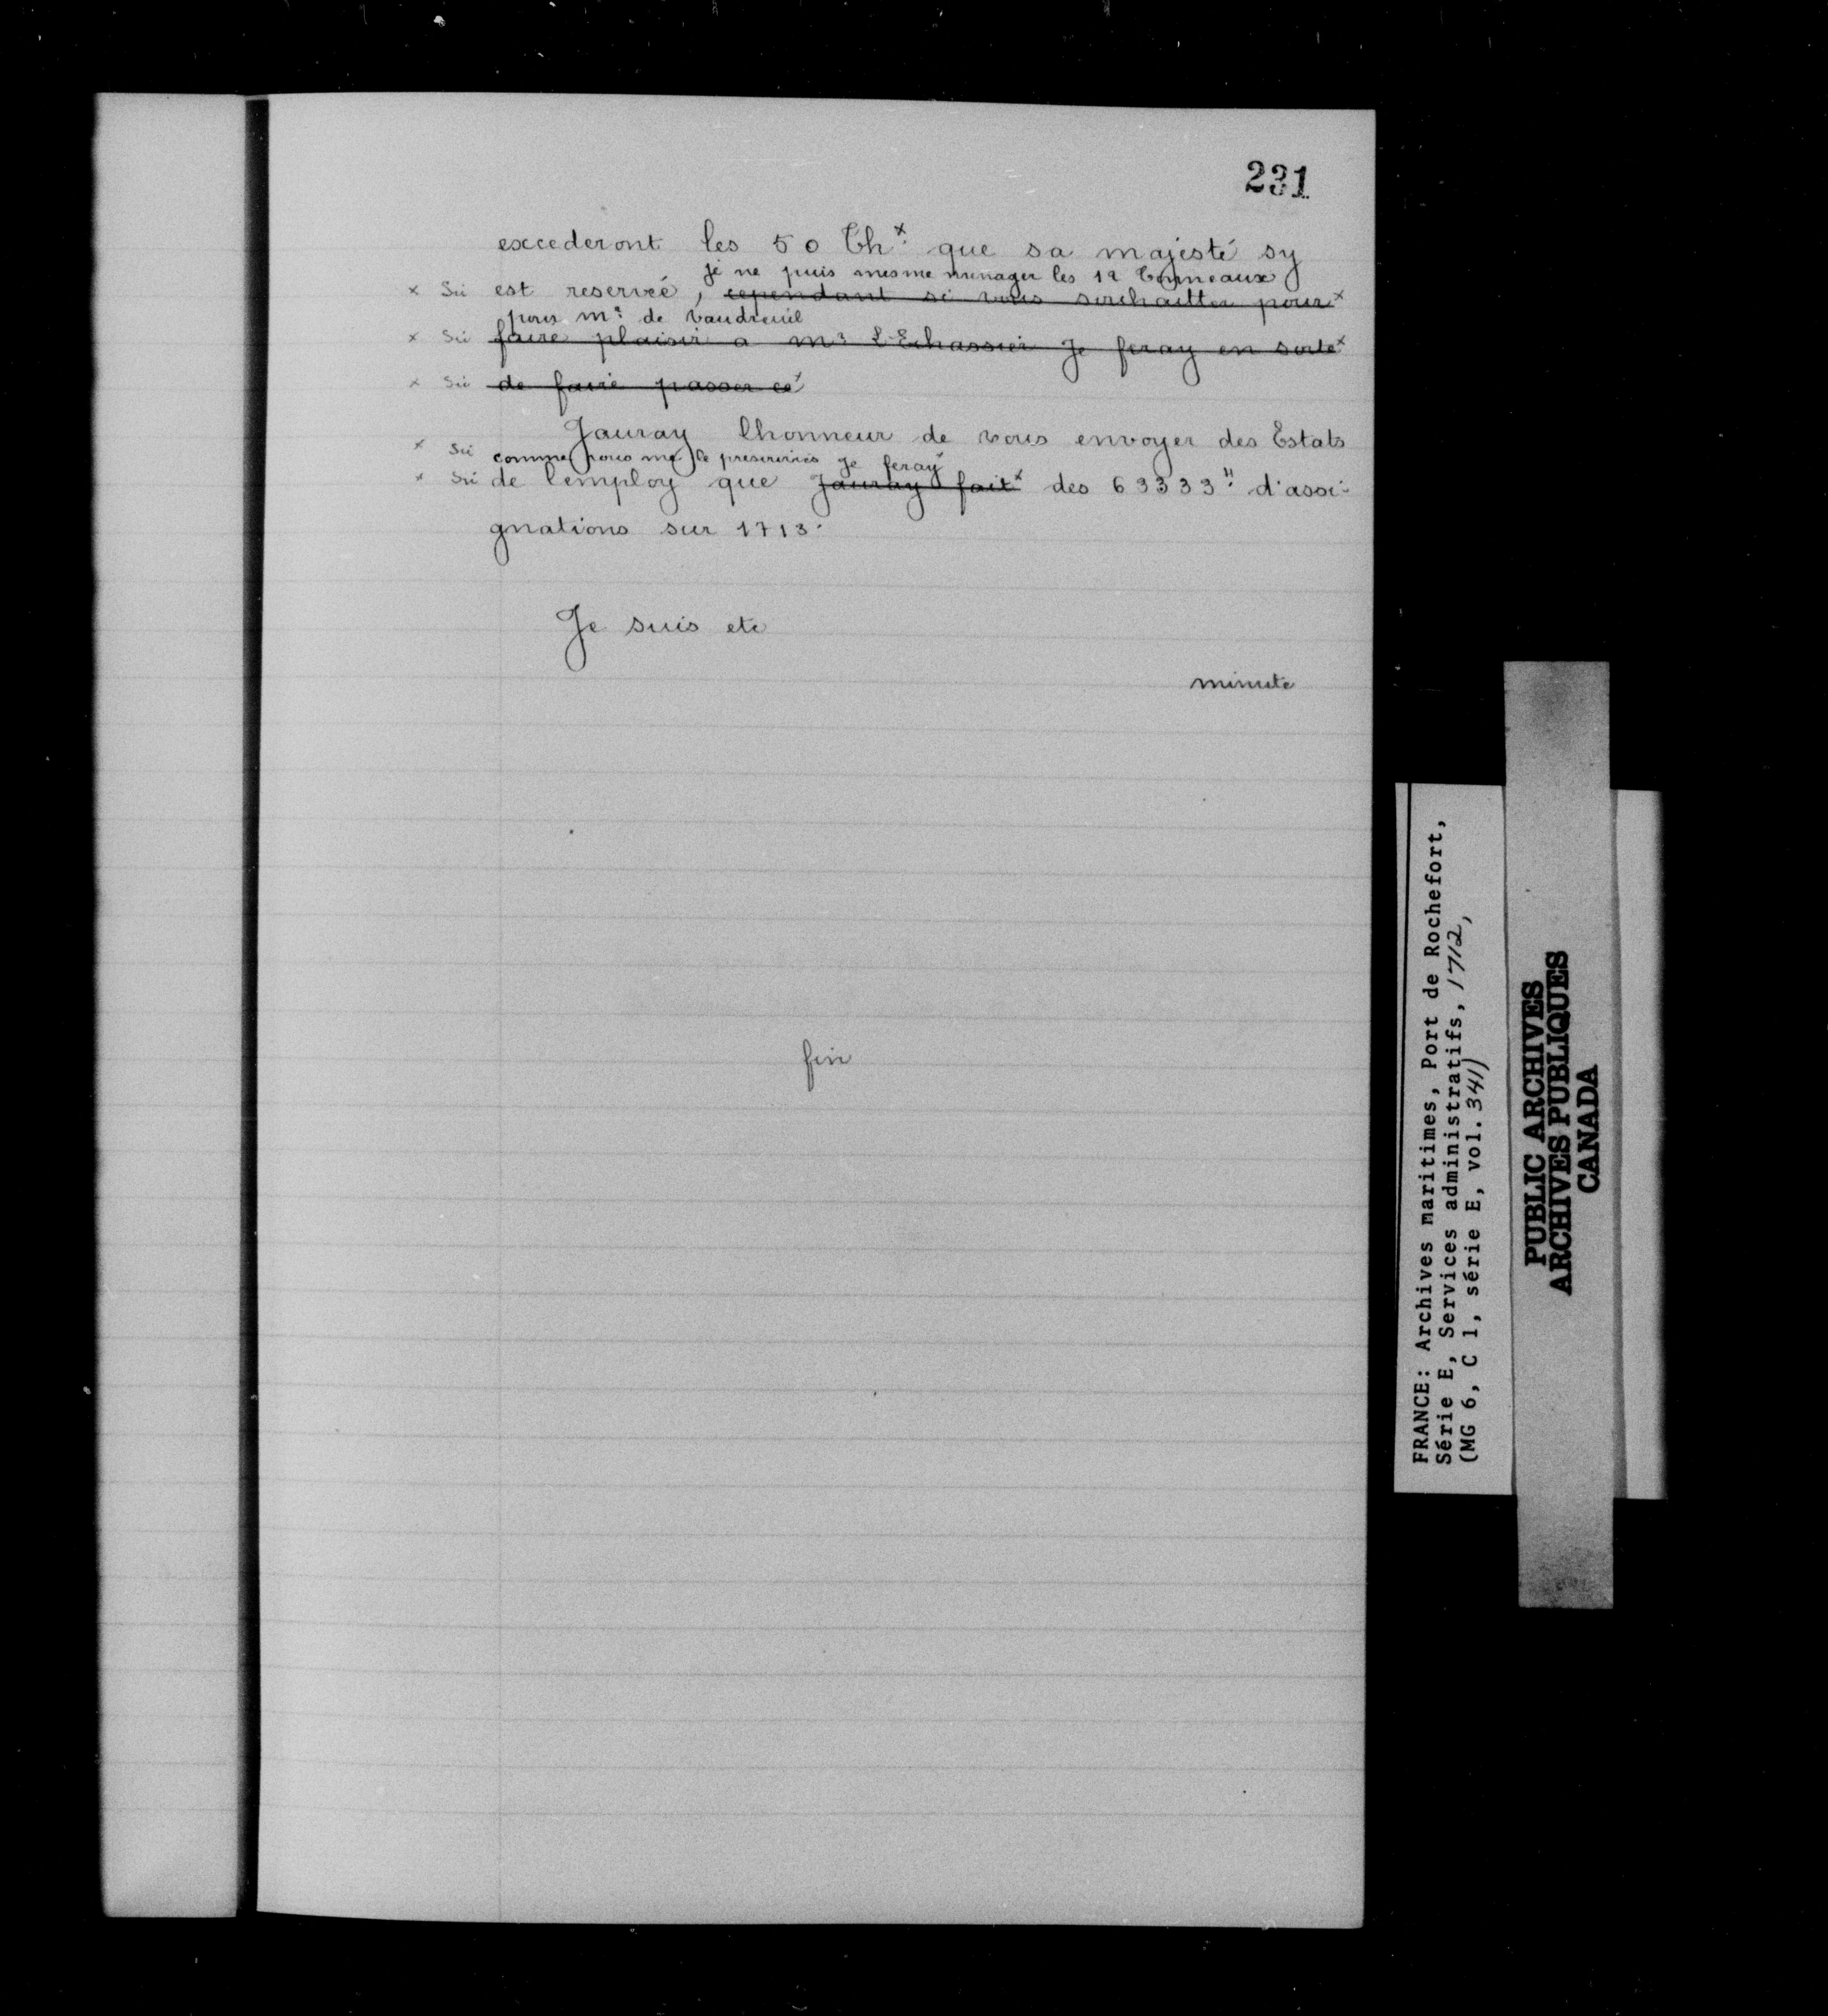 231
excederont les 50 Thx. que sa majesté sy
je ne puis mesme menager les 12 tonneaux
x Sii est reservée, cependant si vous souhaittez pour x
pour mr. de Vaudreuil
x Sii faire plaisir a mr L'Echassier Je feray en sorte x
x Sii de faire passer ce x
Jauray lhonneur de vous envoyer des Estats
x Sii comme vous me le prescrivies Je feray
x Sii de lemploy que Jauray fait x des 63333" d'assi-
gnations sur 1713.
Je suis etc
minute
fin
FRANCE: Archives maritimes, Port de Rochefort,
Série E, Services administratifs, 1712,
(MG 6, C 1, série E, vol. 341)
PUBLIC ARCHIVES
ARCHIVES PUBLIQUES
CANADA